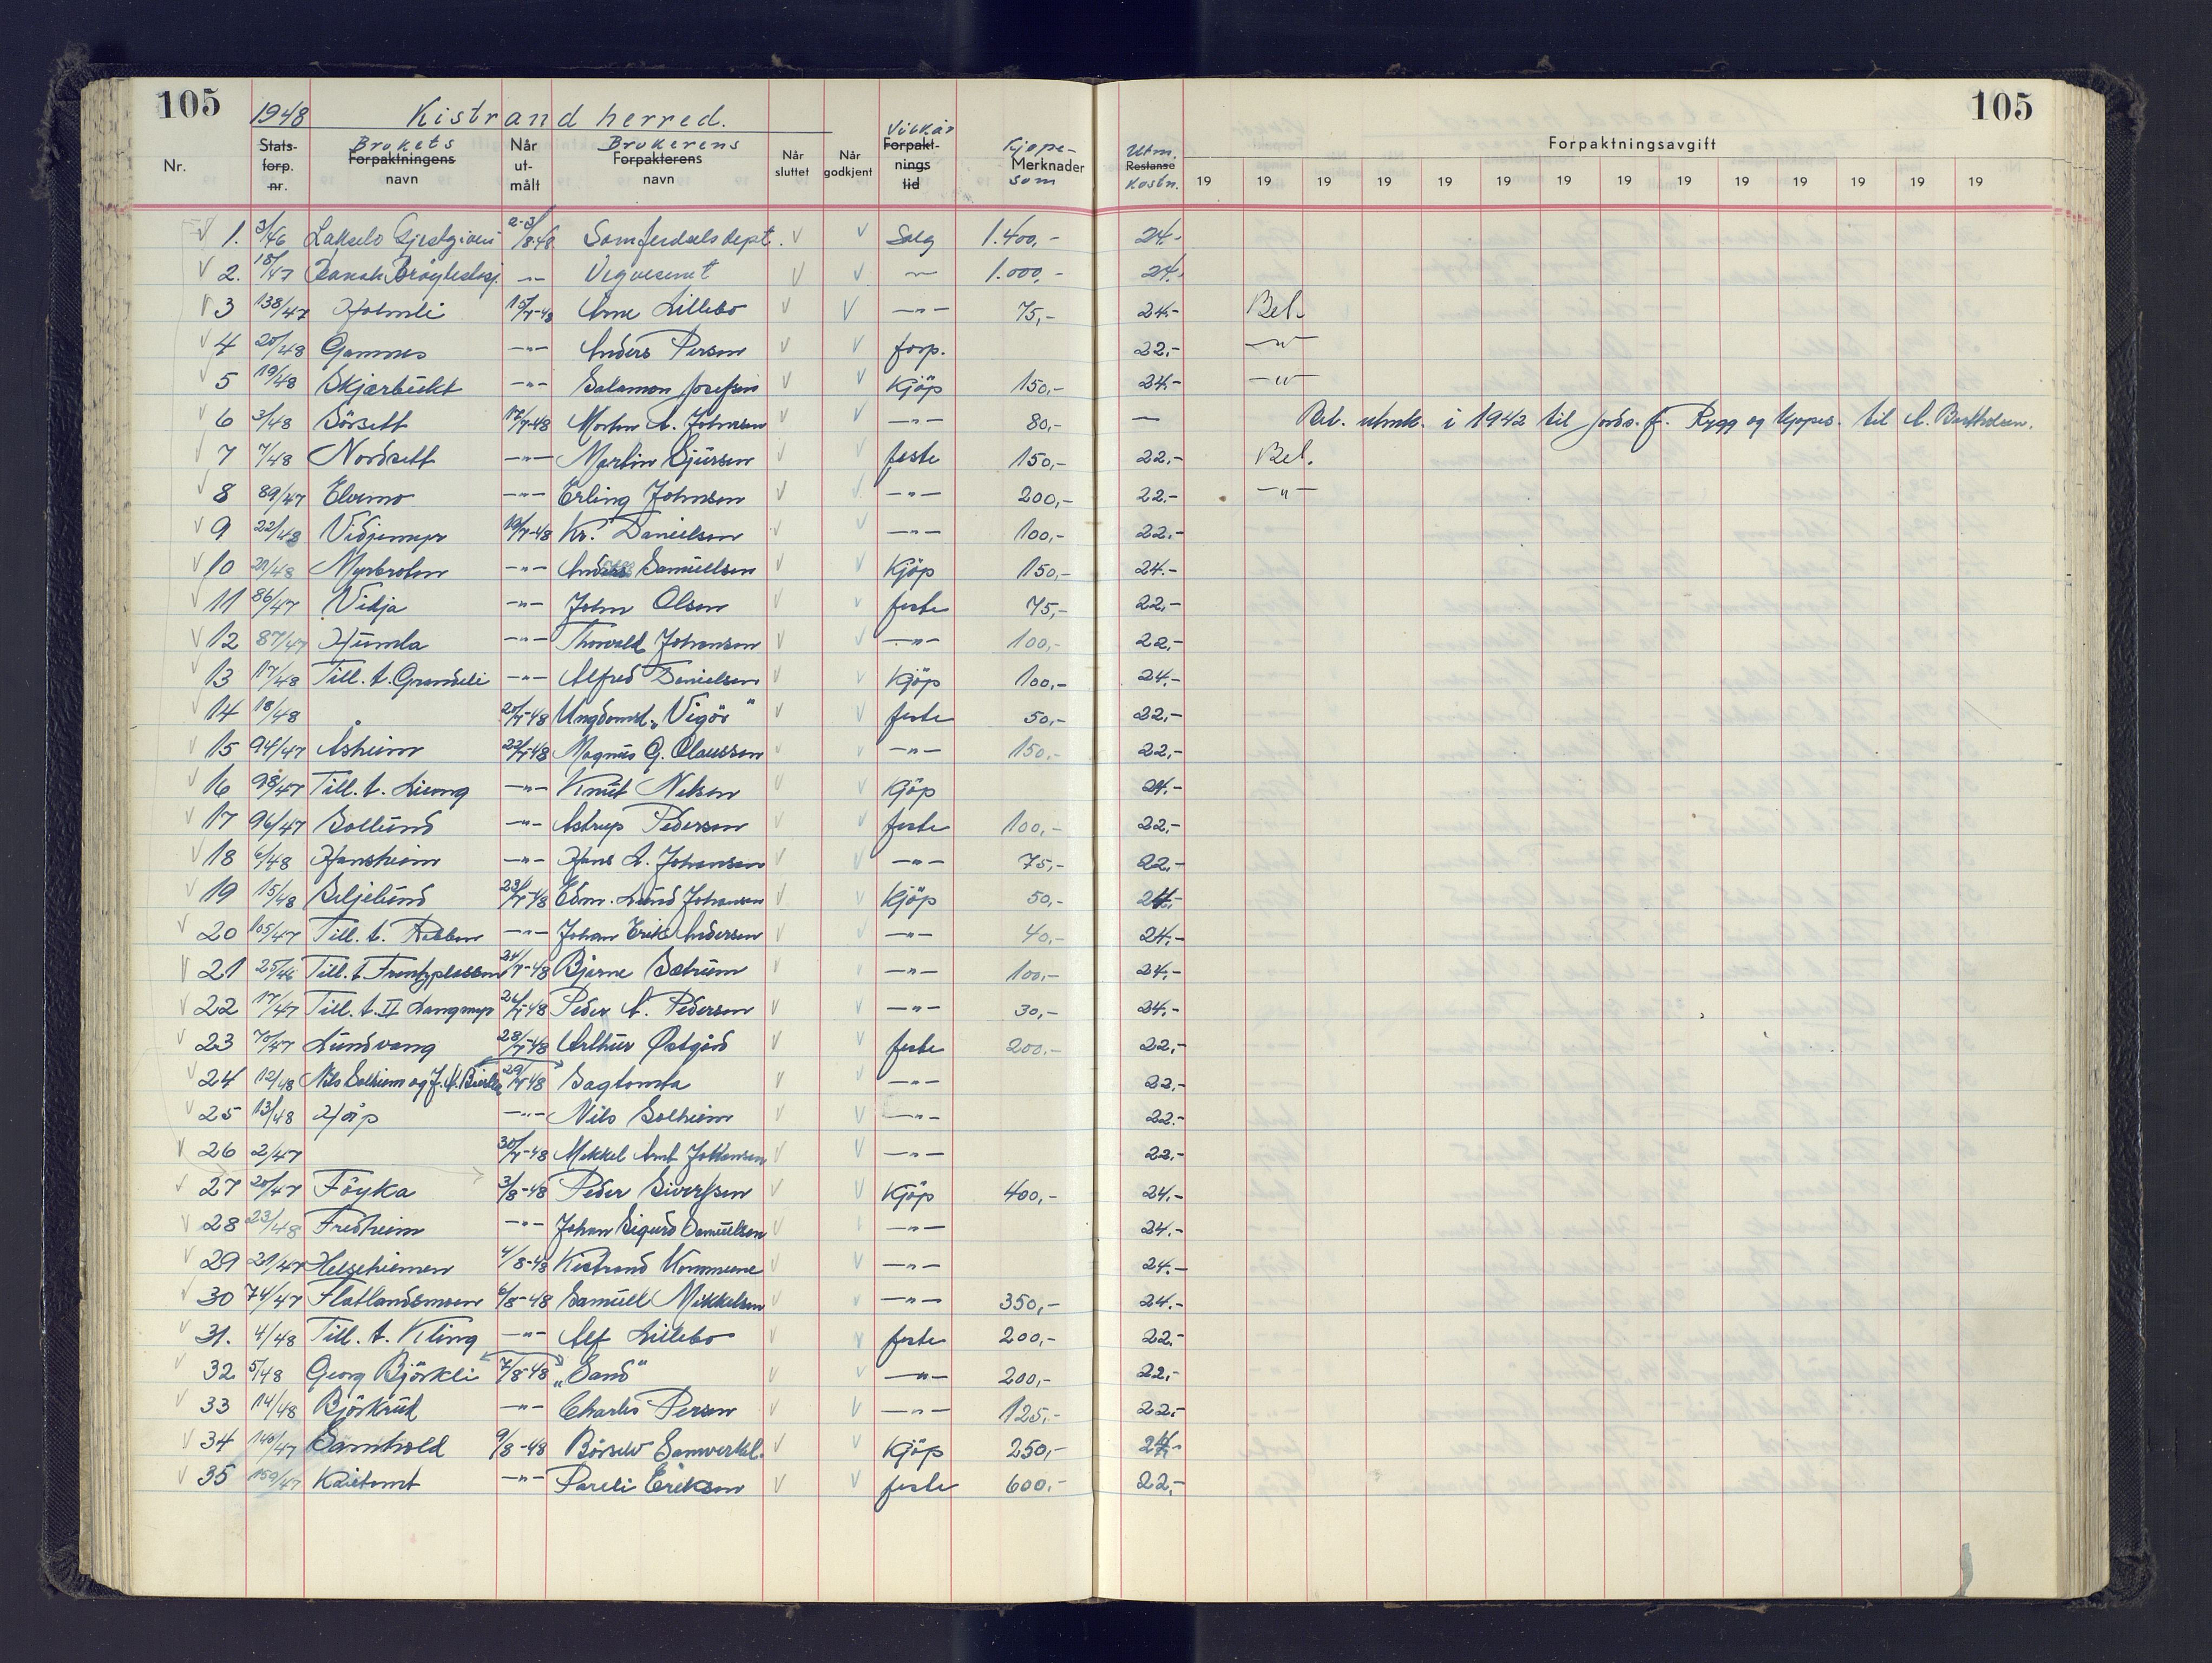 105
105
1948 Kistrand herred.
Nr. Stats-forp. nr. Brukets Forpaktningens navn Når ut-målt Brukerens Forpakterens navn Når sluttet Når godkjent Vilkår Forpakt-nings tid Kjøpe- Merknader sum Utm. Restanse kostn. Forpaktningsavgift
19 19 19 19 19 19 19 19 19 19 19 19 19 19
√ 1. 3/46 Lakselv Gjestgiveri 2-3/8-48 Samferdselsdept. √ √ Salg 1.400,- 24.-
√ 2. 18/47 -"- Vegvesenet √ √ -"- 1.000,- 24.-
√ 3 138/47 Holmli 15/7-48 Arne Lillebo √ √ -"- 75,- 24.- Bet.
√ 4 20/48 Gammes -"- Anders Persen √ √ forp. 22.- -"-
√ 5 19/48 Skjærbukt -"- Salamon Josefsen √ √ Kjöp 150,- 24.- -"-
√ 6 3/48 Sörsett 17/7-48 Morten A. Johnsen √ √ -"- 80,- — Bet. utmk. i 1942 til jords. f. Rygg og kjøpes. til A. Berthelsen.
√ 7 7/48 Nordsett -"- Martin Gjürsen √ √ feste 150,- 22.- Bet.
√ 8 89/47 Elvemo -"- Erling Johnsen √ √ -"- 200,- 22.- -"-
√ 9 22/48 Vidjemyr 19/7-48 Kr. Danielsen √ √ -"- 100,- 22.-
√ 10 21/48 -"- Anders Samuelsen √ √ Kjöp 150,- 24.-
√ 11 86/47 Vidja -"- John Olsen √ √ feste 75,- 22.-
√ 12 87/47 Humla -"- Thorvald Johansen √ √ -"- 100,- 22.-
√ 13 17/48 Till. t. Grandeli -"- Alfred Danielsen √ √ Kjöp 100,- 24.-
√ 14 18/48 20/7-48 Ungdomsl. „Vigör" √ √ feste 50,- 22.-
√ 15 94/47 Åsheim 22/7-48 Magnus G. Claussen √ √ -"- 150,- 22.-
√ 16 98/47 Till. t. -"- Knut Nilsen √ √ Kjöp 24.-
√ 17 96/47 Sollund -"- Astrup Pedersen √ √ feste 100,- 22.-
√ 18 6/48 Hansheim -"- Hans A. Johansen √ √ -"- 75,- 22.-
√ 19 15/48 Seljelund 23/7-48 Edm. Lund Johansen √ √ Kjöp 50,- 24.-
√ 20 105/47 Till. t. Robben -"- Johan Erik Andersen √ √ -"- 40,- 24.-
√ 21 25/46 Till. t. 24/7-48 Bjarne Sætrum √ √ -"- 100,- 24.-
√ 22 17/47 Till. t. II Langmyr 26/7-48 Peder A. Pedersen √ √ -"- 30,- 24.-
√ 23 70/47 Lundvang 28/7-48 Arthur Østgård √ √ feste 200.- 22.-
√ 24 12/48 Nils Solheim og J. N. 29/7-48 Sagtomta √ √ -"- 22.-
√ 25 13/48 Håp -"- Nils Solheim √ √ -"- 22.-
√ 26 2/47 30/7-48 Mikkel Amt Johansen √ √ -"- 22.-
√ 27 20/47 Föyka 3/8-48 Peder Sivertsen √ √ Kjöp 400,- 24.-
√ 28 23/48 Fredheim -"- Johan Sigurd Samuelsen √ √ -"- 24.-
√ 29 21/47 Helseheimen 4/8-48 Kistrand Kommune √ √ -"- 24.-
√ 30 74/47 Flatlandsmoen 6/8-48 Samuel Mikkelsen √ √ -"- 350,- 24.-
√ 31. 4/48 Till. t. Kling -"- Alf Lillebo √ √ feste 200,- 22.-
√ 32 5/48 Georg Björkli 7/8-48 „Sand" √ √ -"- 200,- 22.-
√ 33 14/48 Björkrud -"- Charles Persen √ √ -"- 125,- 22.-
√ 34 140/47 Samhold 9/8-48 Börselv Samverkel. √ √ Kjöp 250,- 24.-
√ 35 159/47 Kaitomt -"- Pareli Eriksen √ √ feste 600.- 22.-